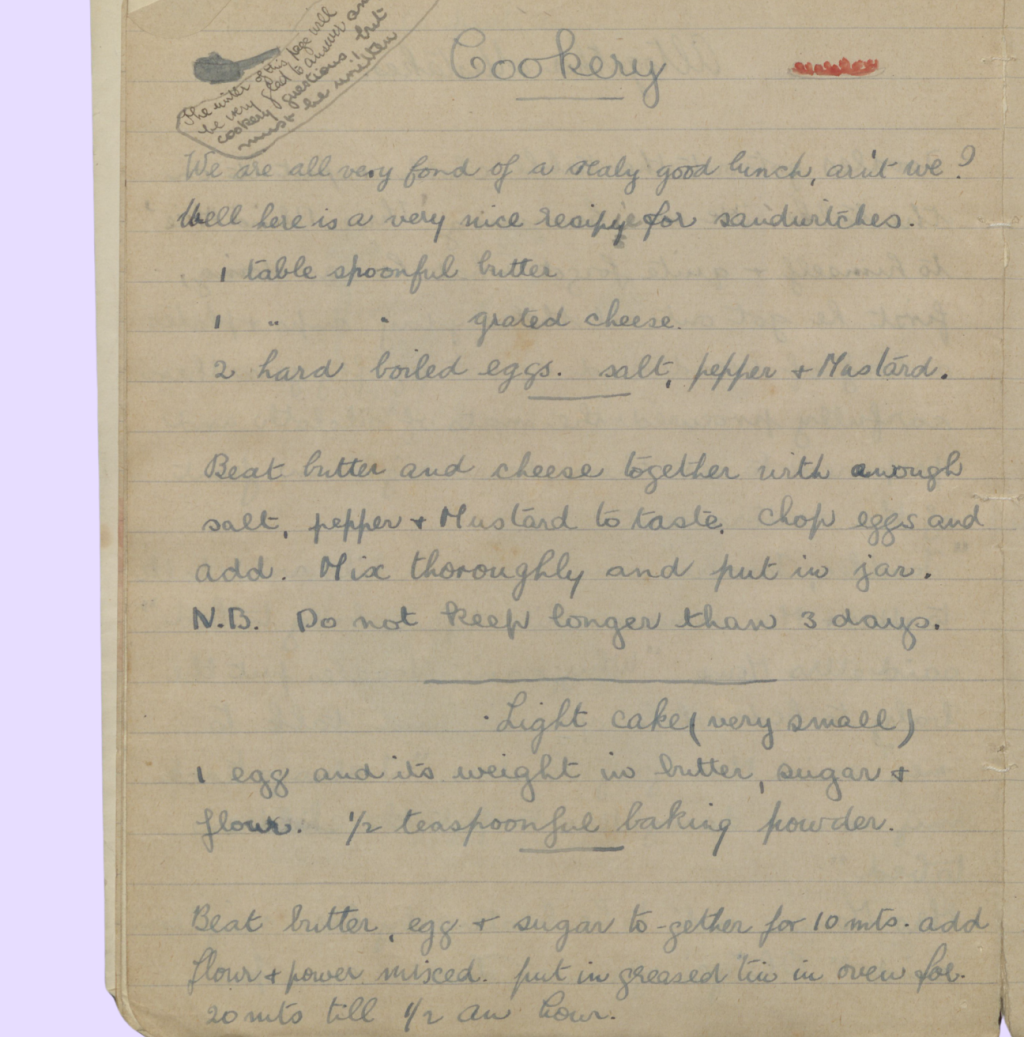 The writer of this page will
be very glad to answer an
cookery questions, but
must be written
Cookery
We are all very fond of a realy good lunch, arn't we?
Well here is a very nice recipye for sandwitches.
1 table spoonful butter
1 " " grated cheese.
2 hard boiled eggs. salt, pepper + Mustard.
Beat butter and cheese together with enough
salt, pepper + Mustard to taste. Chop eggs and
add. Mix thoroughly and put in jar.
N.B. Do not keep longer than 3 days.
Light cake (very small)
1 egg and its weight in butter, sugar +
flour. 1/2 teaspoonful baking powder.
Beat butter, egg + sugar to-gether for 10 mts. add
flour + power mixed. put in greased tin in oven for
20 mts till 1/2 an hour.